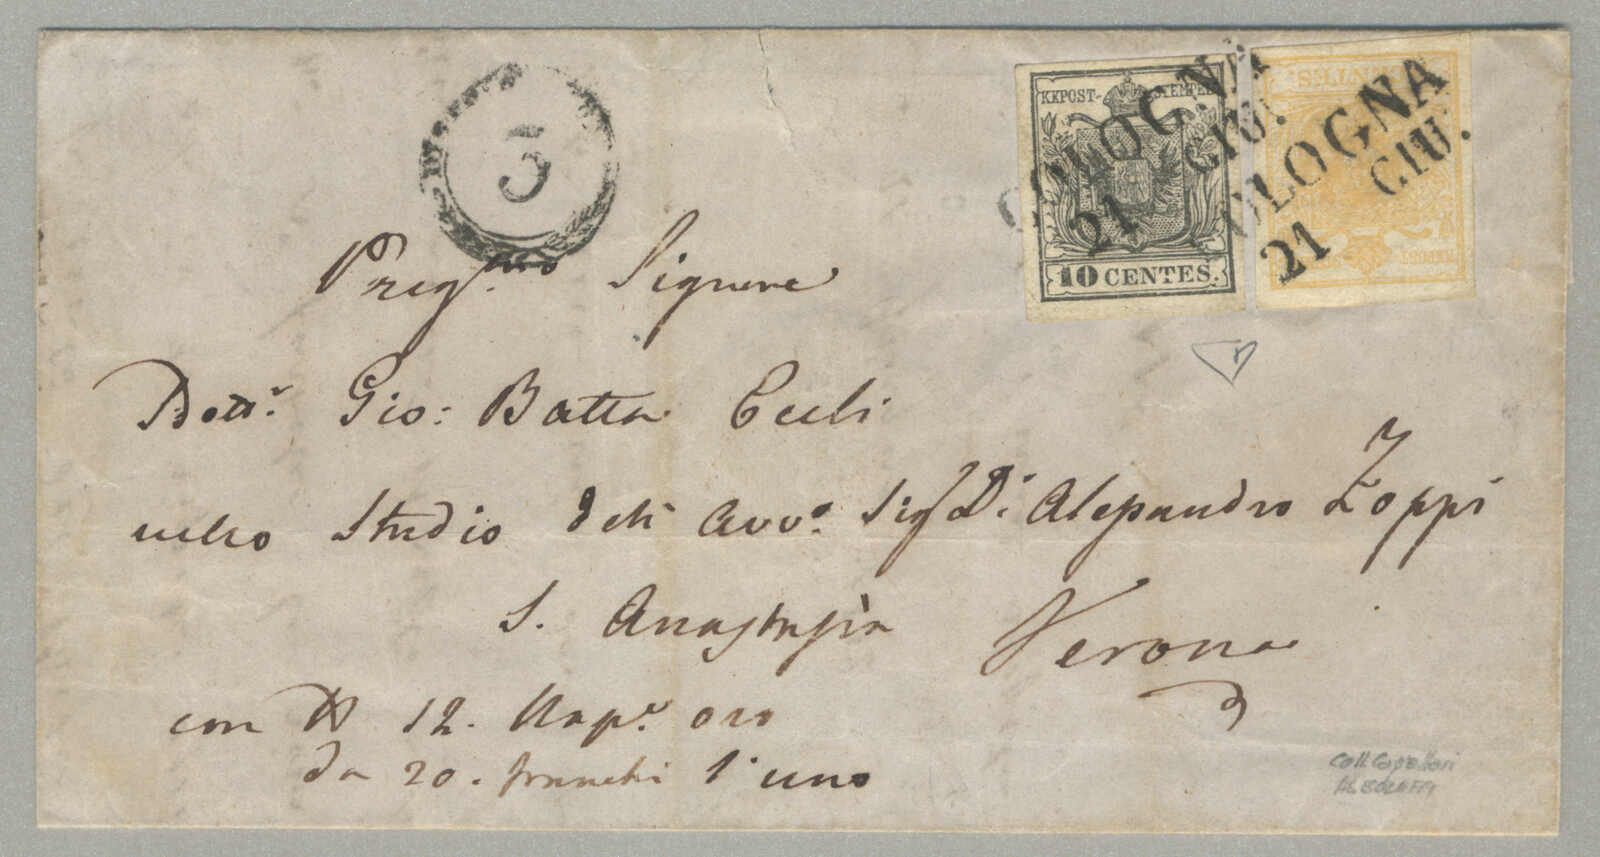 3
KKPOST-STEMPEL
10 CENTES.
COLOGNA
21 GIU.
COLOGNA
21 GIU.
Preg.mo Signore
Dott.r Gio: Batta
nello Studio dell Avv.o Sig. D.r Alessandro Zoppi
S. Anastasia Verona
con N 12. Nap.i oro
da 20. franchi l'uno
Coll